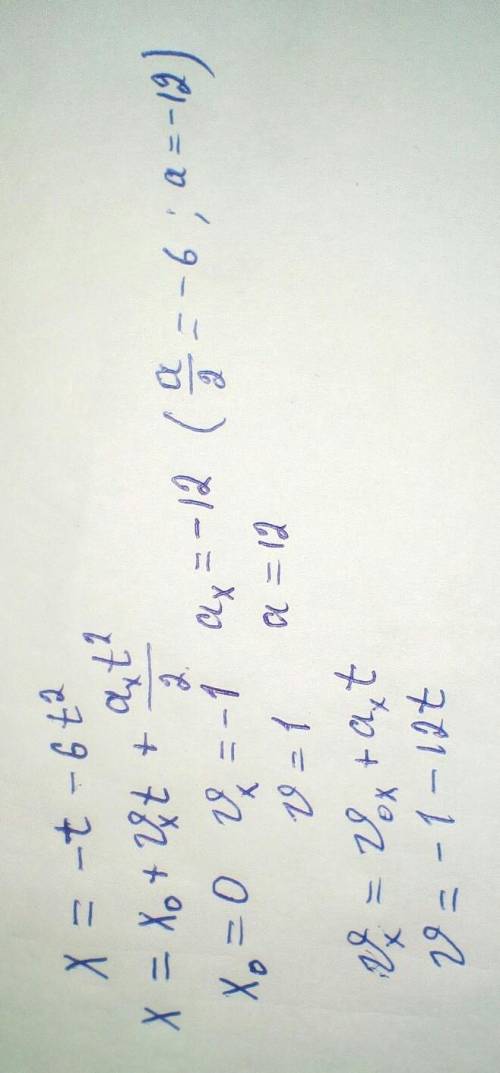 x = -t - 6t²
x = x₀ + ϑₓt + aₓt²/2
x₀ = 0 ϑₓ = -1 aₓ = -12 (a/2 = -6; a = -12)
ϑ = 1 a = 12
ϑₓ = ϑ₀ₓ + aₓt
ϑ = -1 - 12t